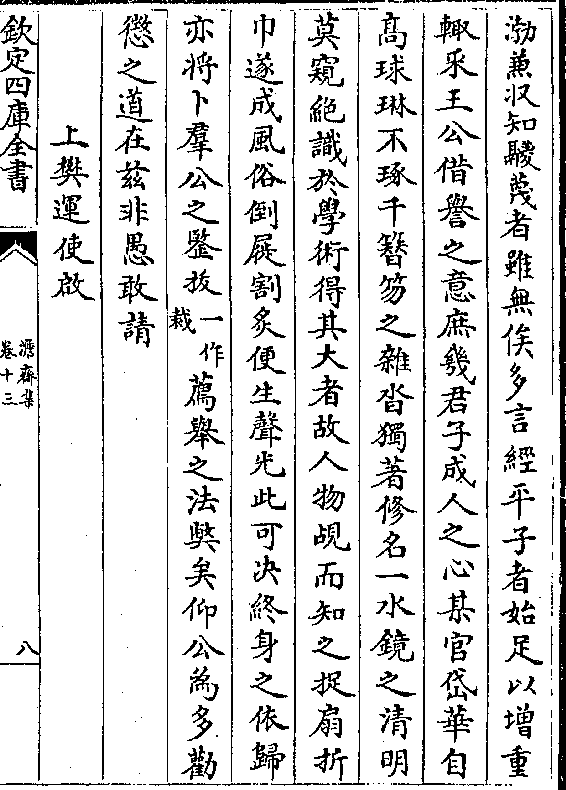 渤兼収知鬷蔑者雖無俟多言經平子者始足以增重
輙采王公偕譽之意庶㡬君子成人之心某官岱華自
髙球琳不琢千簪笏之雜沓獨著修名一水鏡之清明
莫窺絶識於學術得其大者故人物覘而知之捉扇折
巾遂成風俗倒屐割炙便生聲光此可决終身之依歸
亦将卜羣公之鑒拔一作裁薦舉之法獘矣仰公為多勸
懲之道在兹非愚敢請
上樊運使啟
欽定四庫全書
澹齋集
卷十三
八